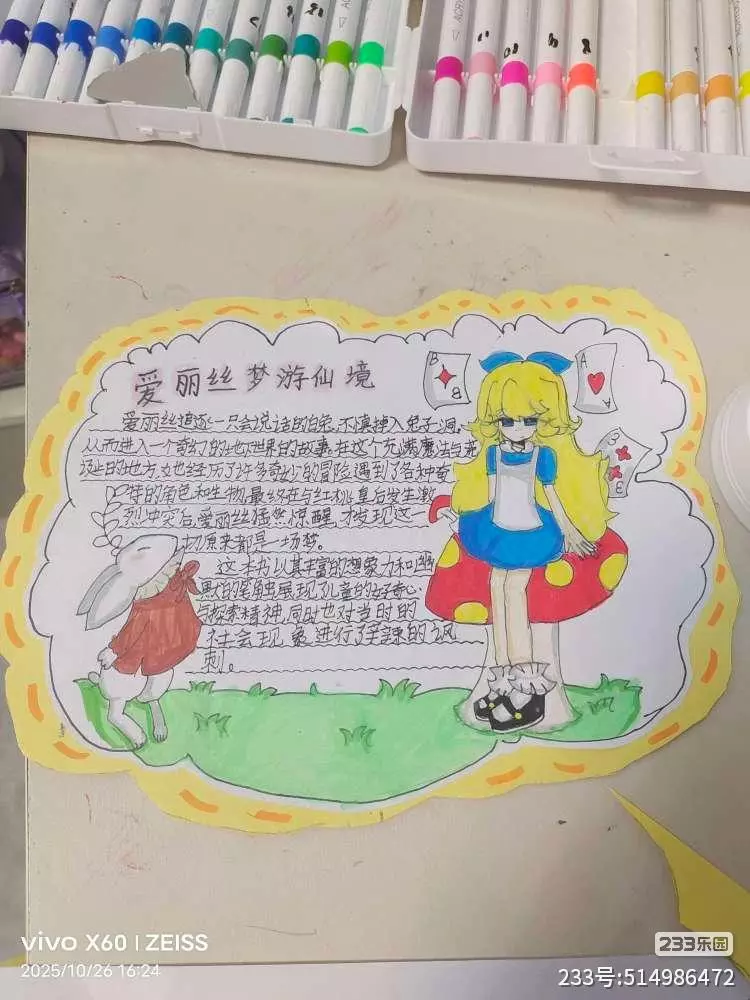 爱丽丝梦游仙境
爱丽丝追逐一只会说话的白兔,不慎掉入兔子洞,
从而进入一个奇幻的地下世界的故事。在这个充满魔法与
的地方,她经历了许多奇幻的冒险,遇到了各种奇
特的角色和生物,最终在与红桃皇后发生激
烈冲突后,爱丽丝猛然惊醒,才发现这一
切原来都是一场梦。
这本书以其丰富的想象力和幽
默的笔触展现了儿童的好奇心
与探索精神,同时也对当时的
社会现象进行了辛辣的讽
刺。
B
B
A
A
3
vivo X60 | ZEISS
2025/10/26 16:24
233乐园
233号:514986472